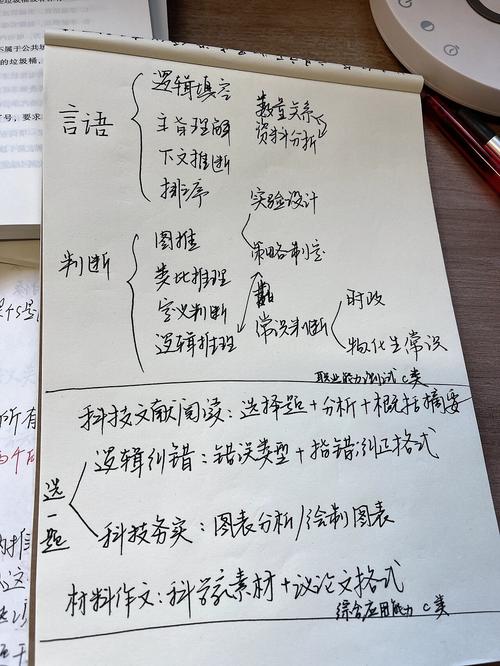 不属于公共垃
的垃圾桶，
号，要求
言语
逻辑填空
主旨理解
下文推断
排序
数量关系
资料分析
判断
图推
类比推理
定义判断
逻辑推理
实验设计
策略制定
常识判断
时政
物化生常识
职业能力测试 C类
科技文献阅读：选择题+分析+概括摘要
选一题
逻辑纠错：错误类型+指错,纠正格式
科技务实：图表分析/绘制图表
材料作文：科学家素材+议论文格式
综合应用能力 C类